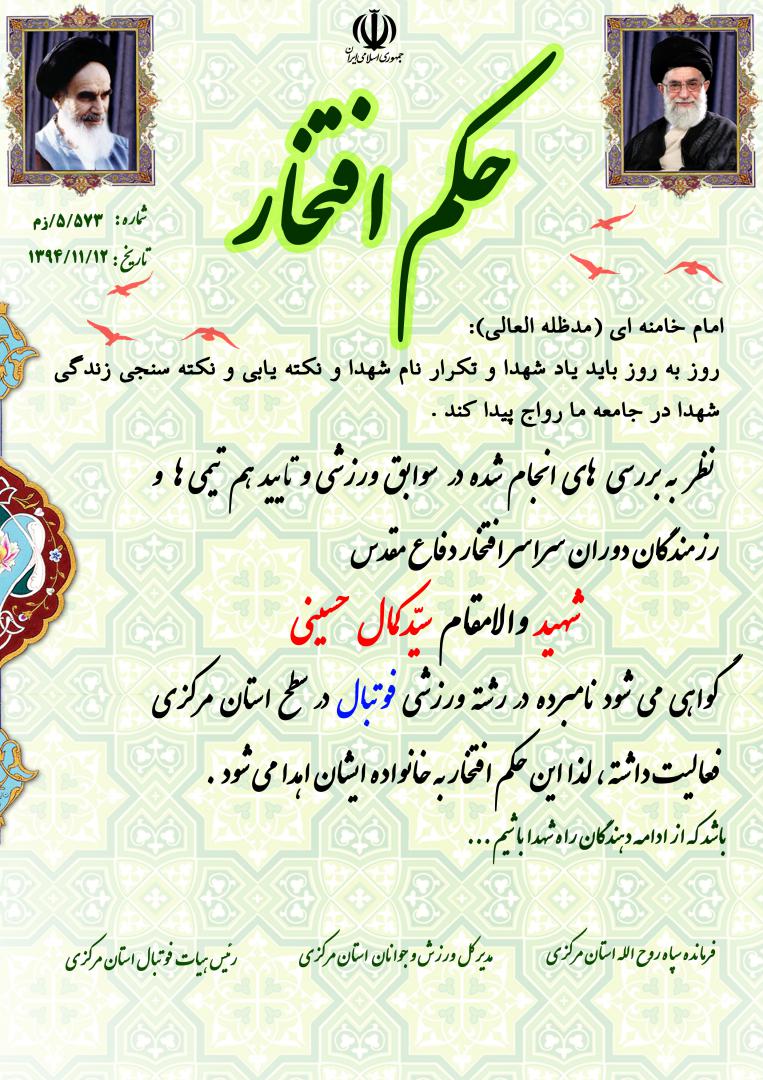 جمهوری اسلامی ایران
حکم افتخار
شماره: ۵/۵۷۳/زم
تاریخ: ۱۳۹۴/۱۱/۱۲
امام خامنه ای (مدظله العالی):
روز به روز باید یاد شهدا و تکرار نام شهدا و نکته یابی و نکته سنجی زندگی
شهدا در جامعه ما رواج پیدا کند .
نظر به بررسی های انجام شده در سوابق ورزشی و تایید هم تیمی ها و
رزمندگان دوران سراسر افتخار دفاع مقدس
شهید والامقام سیّد کمال حسینی
گواهی می شود نامبرده در رشته ورزشی فوتبال در سطح استان مرکزی
فعالیت داشته ، لذا این حکم افتخار به خانواده ایشان اهدا می شود .
باشد که از ادامه دهندگان راه شهدا باشیم ...
فرمانده سپاه روح الله استان مرکزی
مدیر کل ورزش و جوانان استان مرکزی
رئیس هیات فوتبال استان مرکزی